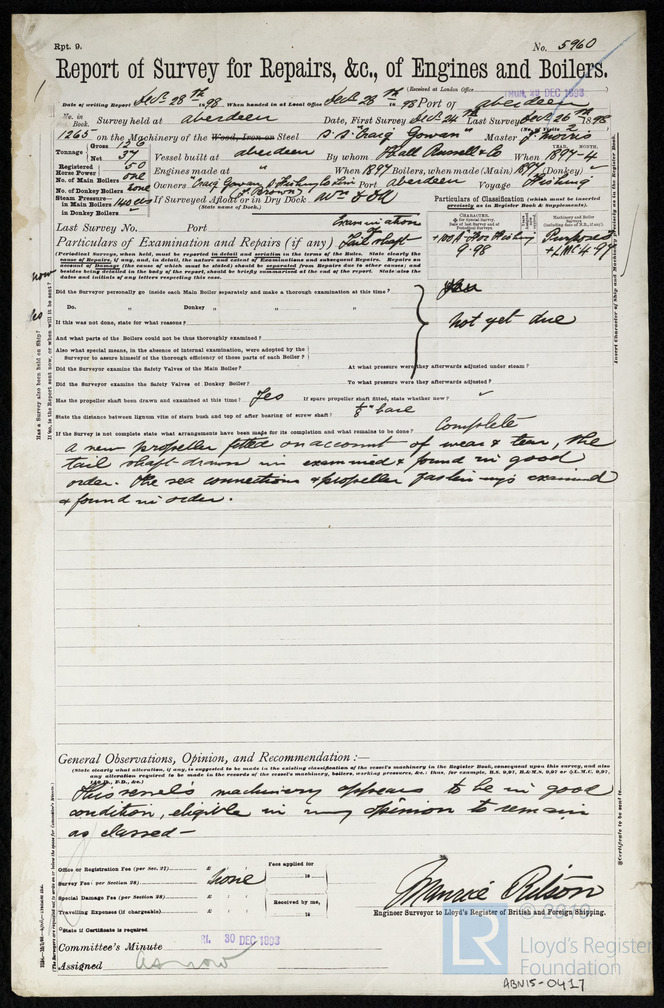 Rpt. 9.
No. 5960
Report of Survey for Repairs, &c., of Engines and Boilers.
(Received at London Office
DEC 1898
Date of writing Report Dec. 28th 1898 When handed in at Local Office Dec. 28th 1898 Port of Aberdeen
No. in Book. Survey held at Aberdeen Date, First Survey Dec. 24th Last Survey Dec 26th 1898
(No. of Visits 2)
1265 on the Machinery of the Wood, Iron or Steel S.S. "Craig Gowan" Master J. Morris
Tonnage Gross 126
Net 37
Vessel built at Aberdeen By whom Hall Russell & Co When 1897-4
YEAR. MONTH.
Registered Horse Power 50
Engines made at " When 1897 Boilers, when made (Main) 1897 (Donkey) "
No. of Main Boilers one
No. of Donkey Boilers none
Owners "Craig Gowan" S. Fishing Co Lim Port Aberdeen Voyage Fishing
Steam Pressure— in Main Boilers 140 lbs
in Donkey Boilers "
If Surveyed Afloat or in Dry Dock
(State name of Dock.)
Particulars of Classification (which must be inserted precisely as in Register Book & Supplements).
Last Survey No. Port
Examination of
Particulars of Examination and Repairs (if any) Tail shaft
+100 A for Fishing
9.98
+L.M.C. 4.97
(Periodical Surveys, when held, must be reported in detail and seriatim in the terms of the Rules. State clearly the
name of Repairs, if any, and, in detail, the nature and extent of Examinations and subsequent Repairs. Repairs on
account of Damage (the cause of which must be stated) should be separated from Repairs due to other causes; and
besides being detailed in the body of the report, should be briefly summarised at the end of the report. State also the
dates and initials of any letters respecting this case.
Did the Surveyor personally go inside each Main Boiler separately and make a thorough examination at this time?
Do. " Donkey " " "
If this was not done, state for what reasons?
not yet due
And what parts of the Boilers could not be thus thoroughly examined?
Also what special means, in the absence of internal examination, were adopted by the
Surveyor to assure himself of the thorough efficiency of those parts of each Boiler?
Did the Surveyor examine the Safety Valves of the Main Boiler? At what pressure were they afterwards adjusted under steam?
Did the Surveyor examine the Safety Valves of Donkey Boiler? To what pressure were they afterwards adjusted?
Has the propeller shaft been drawn and examined at this time? Yes If spare propeller shaft fitted, state whether new? "
State the distance between lignum vitæ of stern bush and top of after bearing of screw shaft? 1/8" bare
If the Survey is not complete state what arrangements have been made for its completion and what remains to be done? Complete
A new propeller fitted on account of wear & tear, the
tail shaft drawn in examined & found in good
order. The sea connections & propeller fastenings examined
& found in order.
General Observations, Opinion, and Recommendation :—
(State clearly what alteration, if any, is suggested to be made in the existing classification of the vessel's machinery in the Register Book, consequent upon this survey, and also
any alteration required to be made in the records of the vessel's machinery, boilers, working pressures, &c.: thus, for example, B.S. 9,97, B.&M.S. 9,97 or L.M.C. 9,97,
This vessel's machinery appears to be in good
condition, eligible in my opinion to remain
as classed —
Office or Registration Fee (per Sec. 27) £ Fees applied for
Survey Fee (per Section 28) £ none 18
Special Damage Fee (per Section 28) £ Received by me,
Travelling Expenses (if chargeable) £ 18
Maurice Ritson
Engineer Surveyor to Lloyd's Register of British and Foreign Shipping.
State if Certificate is required
Committee's Minute 30 DEC 1898
Assigned as now
© 2019
LR Lloyd's Register
Foundation
ABN15-0417